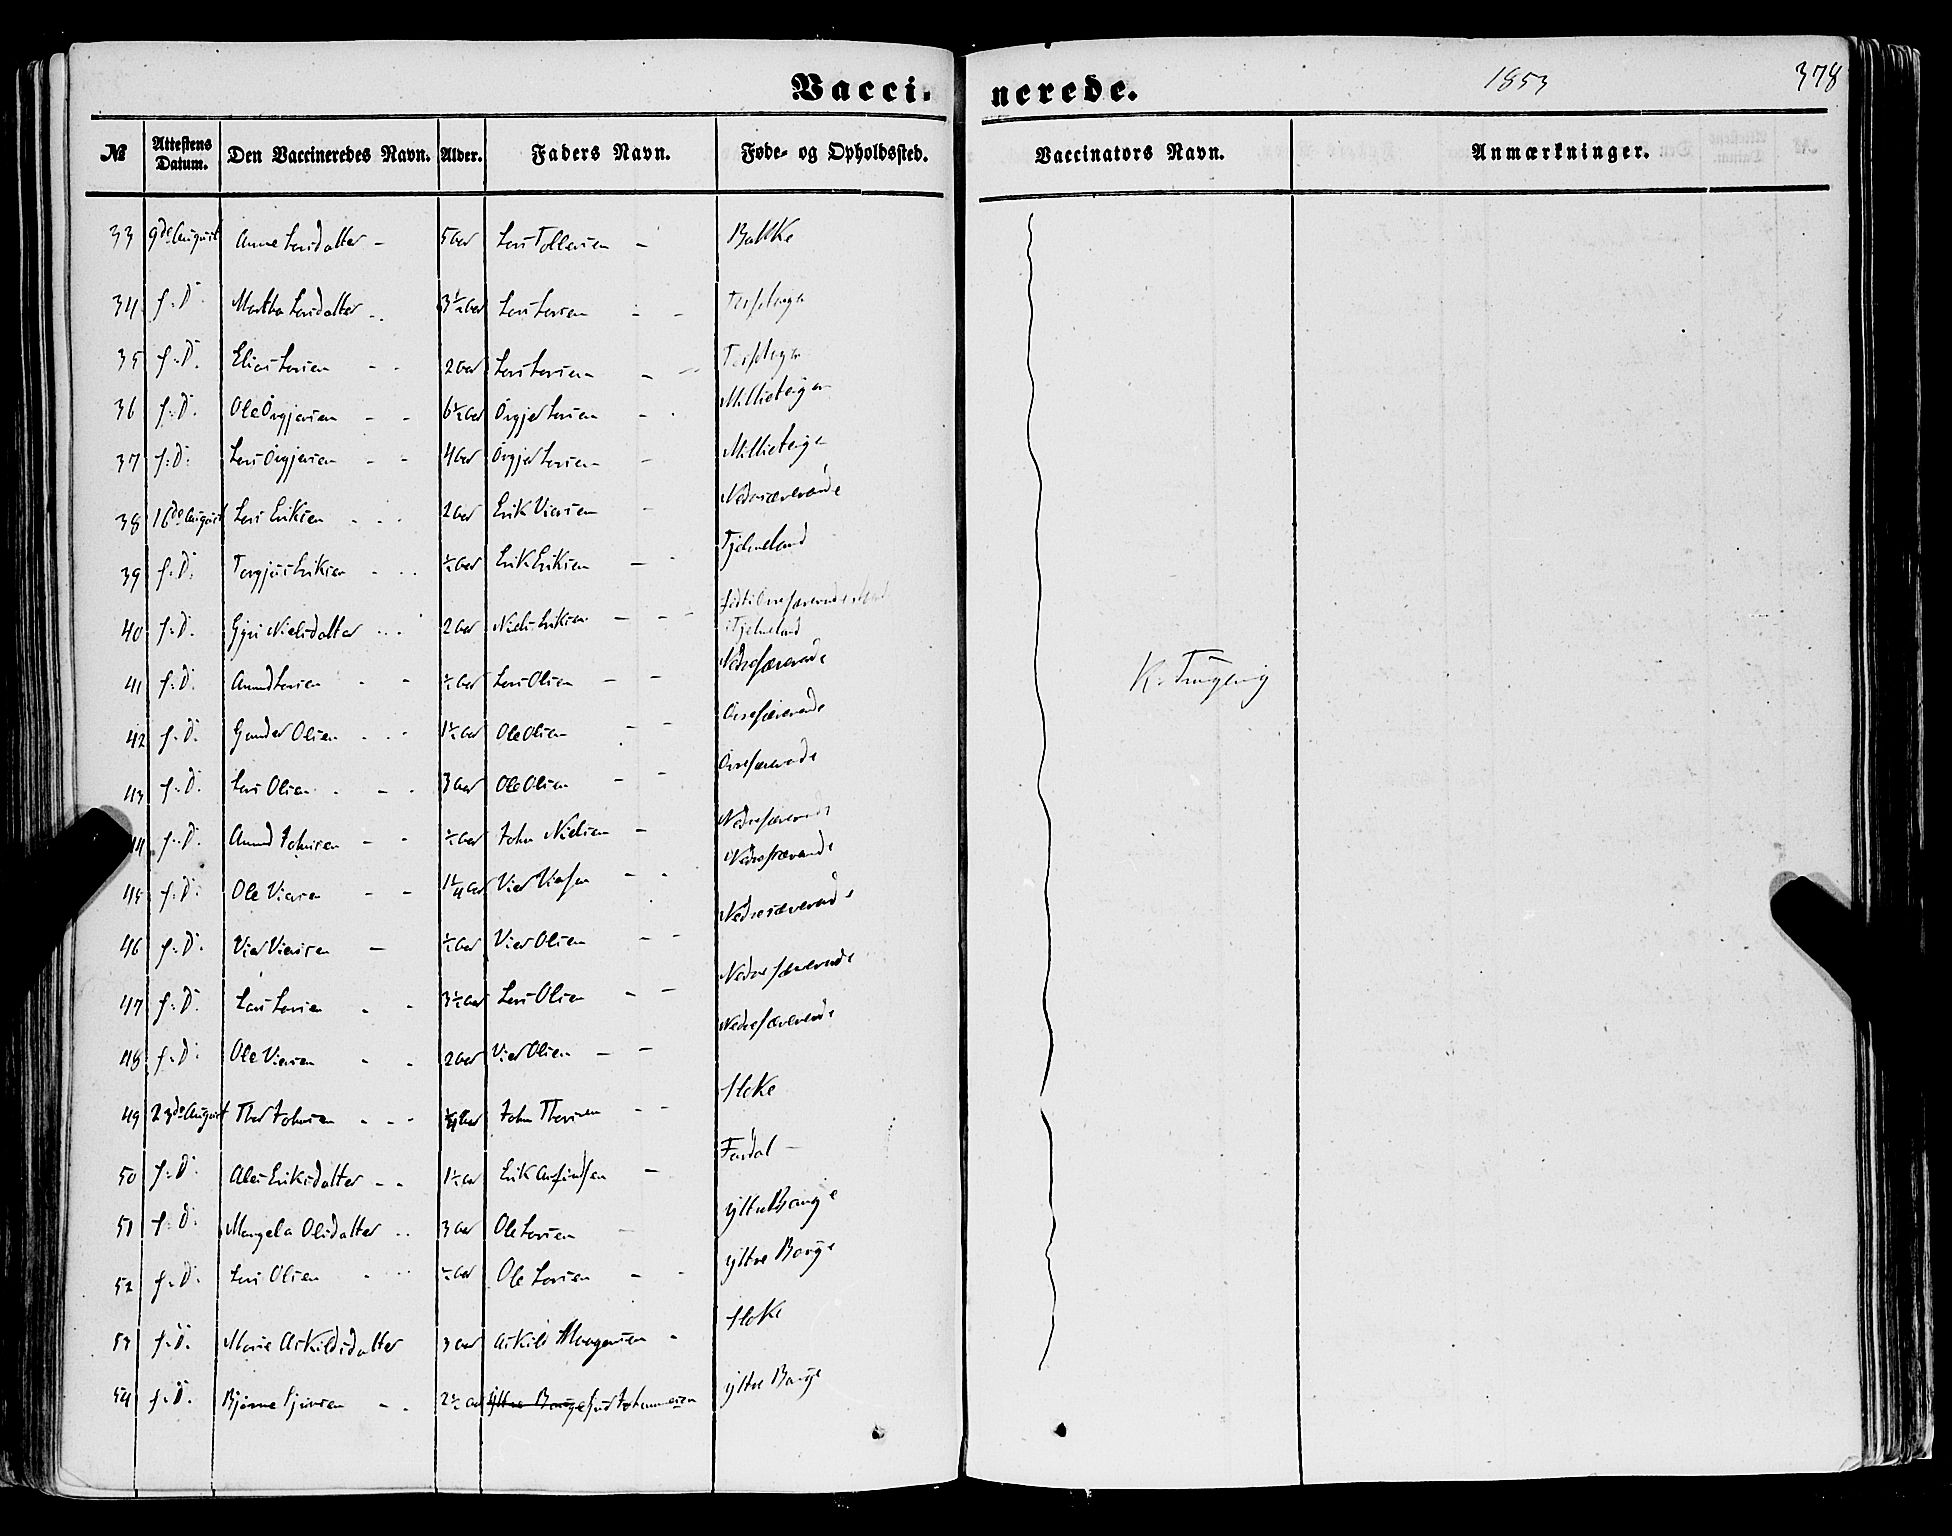 Vaccinerede.
1853
378
№ Attestens Datum. Den Vaccineredes Navn. Alder. Faders Navn. Føde- og Opholdssted. Vaccinators Navn. Anmærkninger.
33 9de August Anne Larsdatter - 5 Aar Lars Tollevsen - Bakke
34 s. D. Martha Larsdatter 3½ Aar Lars Larsen - -
35 s. D. Elias Larsen - - 2 Aar Lars Larsen -
36 s. D. Ole Ørgjersen - - 6½ Aar Ørgjer Larsen - -
37 s. D. Lars Ørgjersen - - 4 Aar Ørgjer Larsen -
38 16de August Lars Eriksen - - - 2 Aar Erik Viersen - Nedresæverende
39 s. D. Torgjus Eriksen - - - ½ Aar Erik Eriksen - - Tjelmeland
40 s. D. Gyri Nielsdatter - - - 2 Aar Niels Eriksen - - - Tjelmeland
41 s. D. Amund Larsen - - ½ Aar Lars Olsen - - Nedresæverende
42 s. D. Gunder Olsen - - - 1½ Aar Ole Olsen - - Øvresæverende
43 s. D. Lars Olsen - - - 3 Aar Ole Olsen - - Øvresæverende
44 s. D. Amund Johnsen - - ½ Aar John Nielsen - Nedresæverende
45 s. D. Ole Viersen - - 1¼ Aar Vier - - Nedresæverende
46 s. D. Vier Viersen - ½ Aar Vier Olsen - - Nedresæverende
47 s. D. Lars Larsen - - 3½ Aar Lars Olsen - - Nedresæverende
48 s. D. Ole Viersen - - 2 Aar Vier Olsen - - Nedresæverende
49 23de August Thor Johnsen - - - Aar John Thorsen - - Hoke
50 s. D. Eriksdatter - - 1½ Aar Erik Arfindsen - Fardal -
51 s. D. Mangela Olsdatter - - 3 Aar Ole Larsen - Yttre Bauge
52 s. D. Lars Olsen - - - ½ Aar Ole Larsen - - Yttre Bauge
53 s. D. Marie Askildsdatter 3 Aar Askild Maagensen - Hoke
54 s. D. Bjørne - - 2½ Aar Yttre Bauge Yttre Bauge